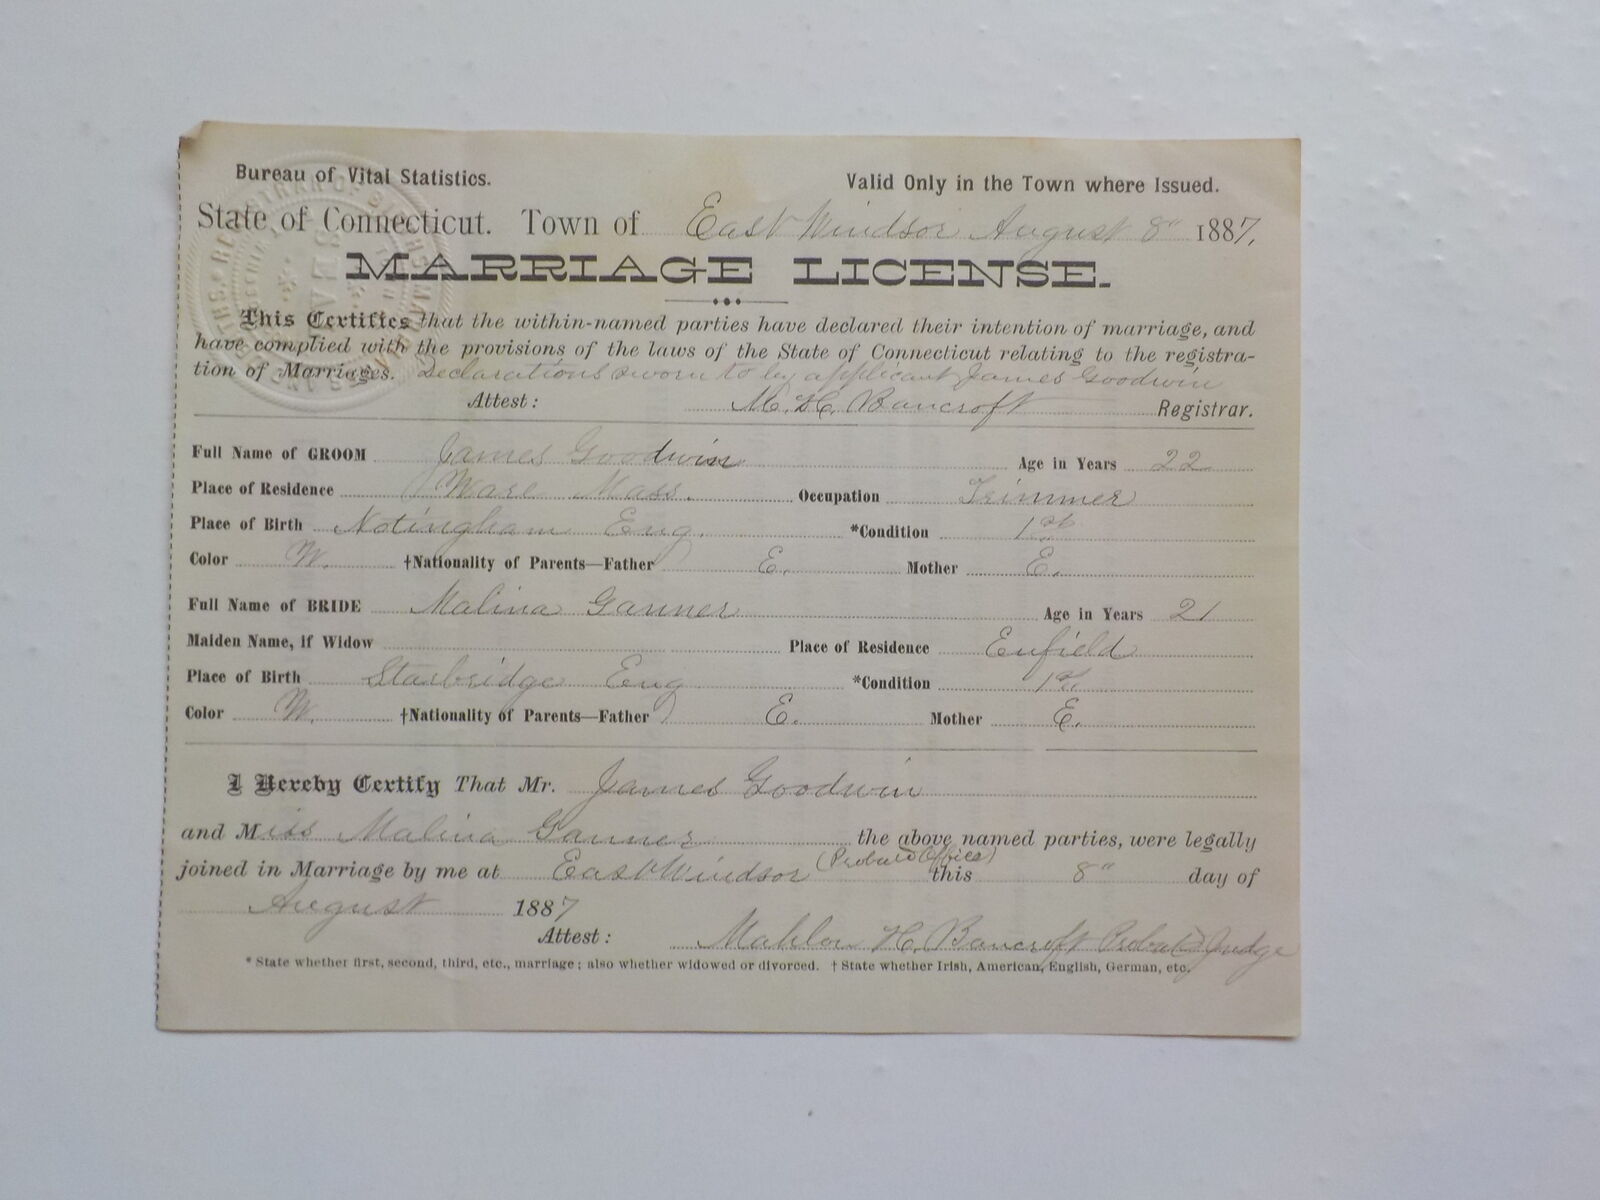 Bureau of Vital Statistics. Valid Only in the Town where Issued.
State of Connecticut. Town of East Windsor August 8" 1887.
MARRIAGE LICENSE.
This Certifies that the within-named parties have declared their intention of marriage, and
have complied with the provisions of the laws of the State of Connecticut relating to the registra-
tion of Marriages. Declarations sworn to by applicant James Goodwin
Attest: M. H. Bancroft Registrar.
Full Name of GROOM James Goodwin Age in Years 22
Place of Residence Ware Mass. Occupation Trimmer
Place of Birth Notingham Eng. *Condition 1st
Color W. †Nationality of Parents—Father E. Mother E.
Full Name of BRIDE Malina Ganner Age in Years 21
Maiden Name, if Widow Place of Residence Enfield
Place of Birth Starbridge Eng *Condition 1st
Color W. †Nationality of Parents—Father E. Mother E.
I Hereby Certify That Mr. James Goodwin
and Miss Malina Ganner the above named parties, were legally
joined in Marriage by me at East Windsor (Probate Office) this 8" day of
August 1887
Attest: Mahlon H. Bancroft Probate Judge
* State whether first, second, third, etc., marriage; also whether widowed or divorced. † State whether Irish, American, English, German, etc.